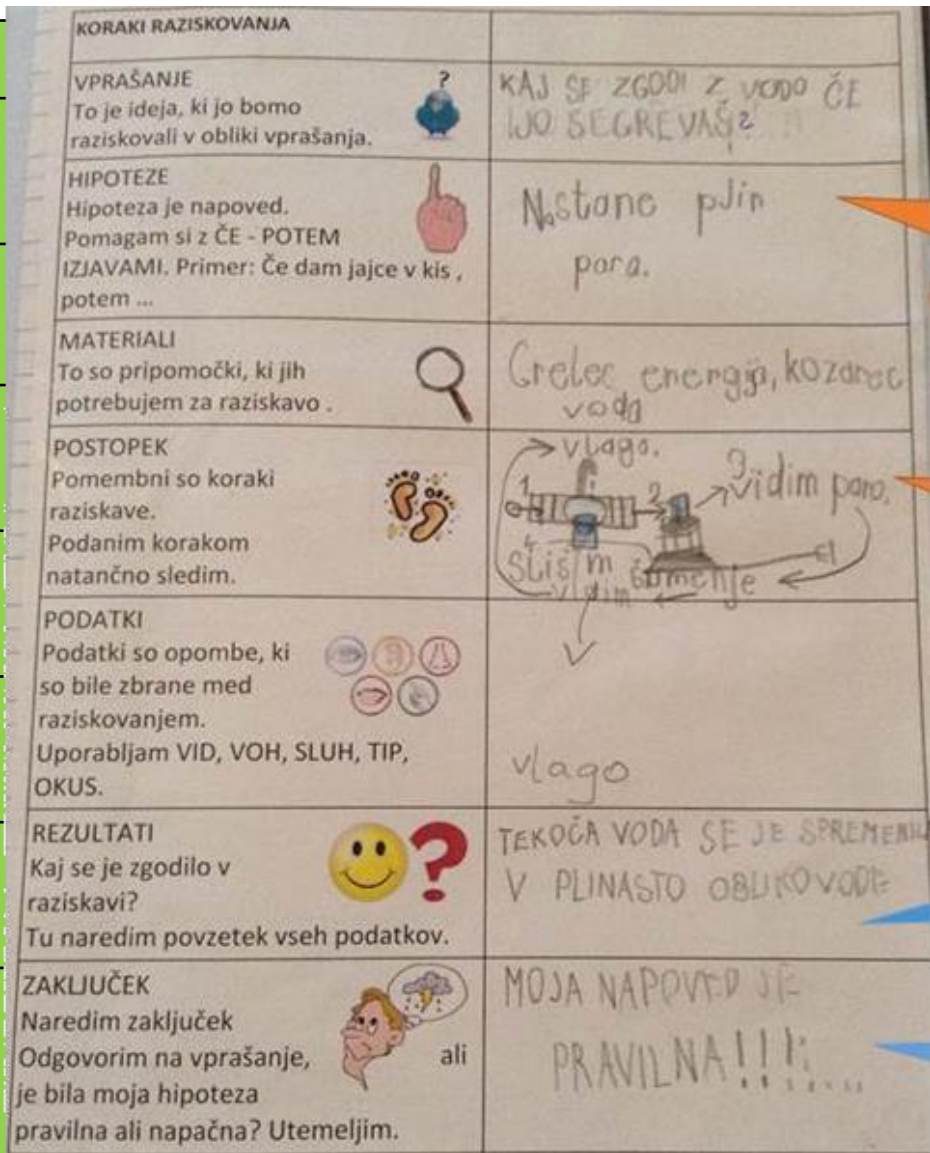 KORAKI RAZISKOVANJA
VPRAŠANJE
To je ideja, ki jo bomo
raziskovali v obliki vprašanja.
?
KAJ SE ZGODI Z VODO ČE
JO SEGREVAŠ?
HIPOTEZE
Hipoteza je napoved.
Pomagam si z ČE - POTEM
IZJAVAMI. Primer: Če dam jajce v kis ,
potem ...
Nastane plin
para.
MATERIALI
To so pripomočki, ki jih
potrebujem za raziskavo .
Grelec energija, kozarec
voda
POSTOPEK
Pomembni so koraki
raziskave.
Podanim korakom
natančno sledim.
vlago.
1
2
3
vidim paro.
4
Slišim šumenje
vidim
PODATKI
Podatki so opombe, ki
so bile zbrane med
raziskovanjem.
Uporabljam VID, VOH, SLUH, TIP,
OKUS.
vlago
REZULTATI
Kaj se je zgodilo v
raziskavi?
Tu naredim povzetek vseh podatkov.
?
TEKOČA VODA SE JE SPREMENILA
V PLINASTO OBLIKO VODE
ZAKLJUČEK
Naredim zaključek
Odgovorim na vprašanje, ali
je bila moja hipoteza
pravilna ali napačna? Utemeljim.
MOJA NAPOVED JE
PRAVILNA!!!!....